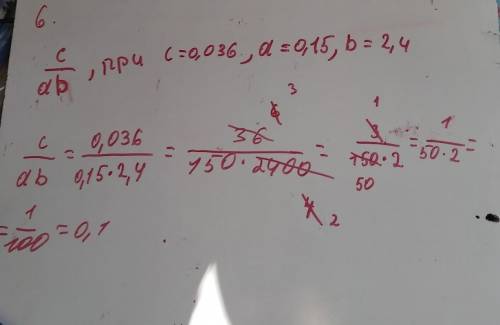 6.
c/ab, при c=0,036, a=0,15, b=2,4
c/ab = 0,036/(0,15·2,4) = 36/(150·2400) = 3/(150·2) = 1/(50·2) =
6 3 1
4 2 50
= 1/100 = 0,1